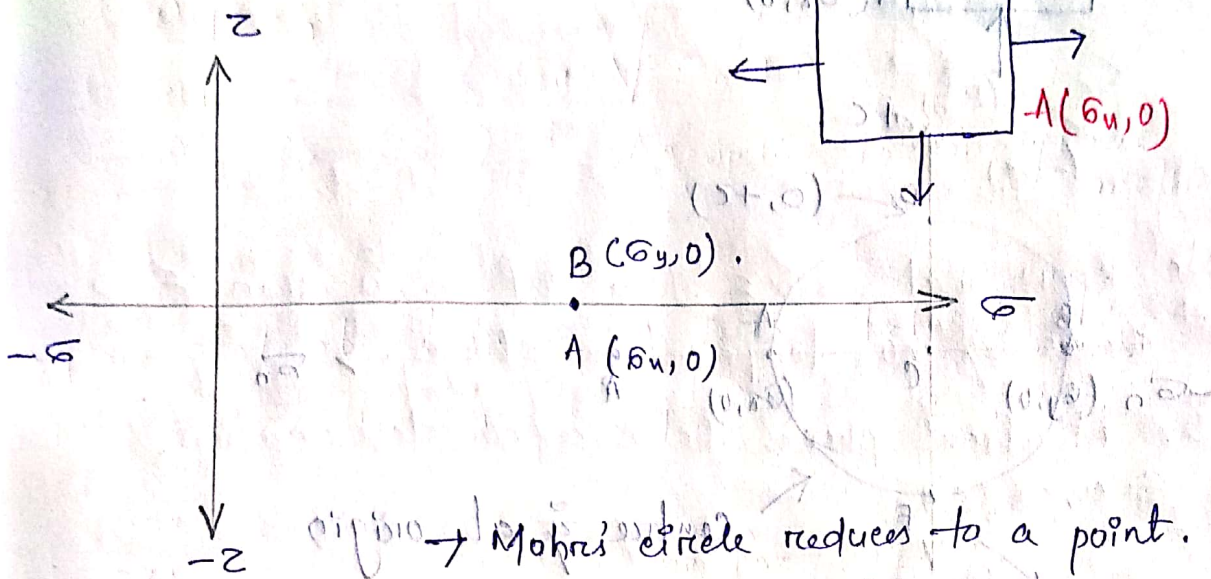 τ
A(σx, 0)
B (σy, 0).
-σ
σ
A (σx, 0)
-τ
→ Mohr's circle reduces to a point.